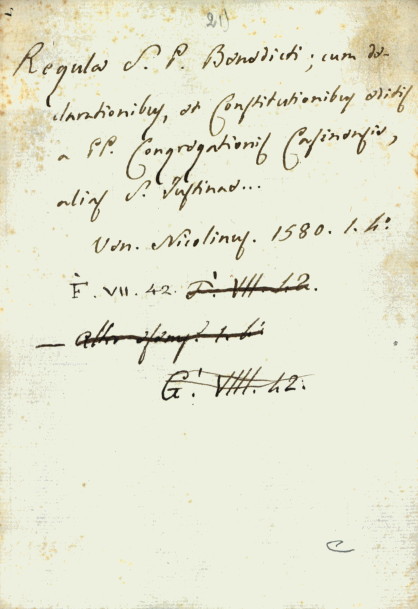 21)
Regula S. P. Benedicti; cum de-
clarationibus, et Constitutionibus editis
a PP. Congregationis Casinensis,
alias S. Justinae...
Ven. Nicolinus. 1580. 1. 4º
F. VII. 42. F. VIII. 42.
G. VIIII. 42.